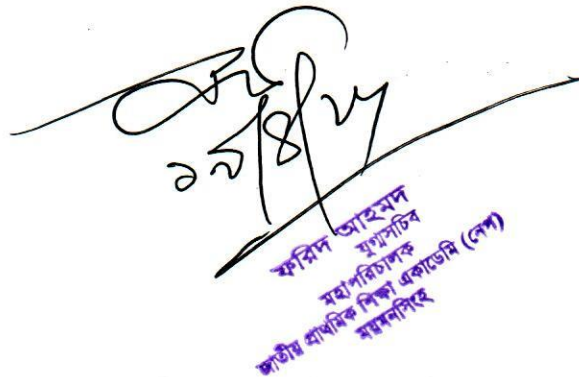 ১৯/৪/২৫
ফরিদ আহমদ
যুগ্মসচিব
মহাপরিচালক
জাতীয় প্রাথমিক শিক্ষা একাডেমি (নেপ)
ময়মনসিংহ